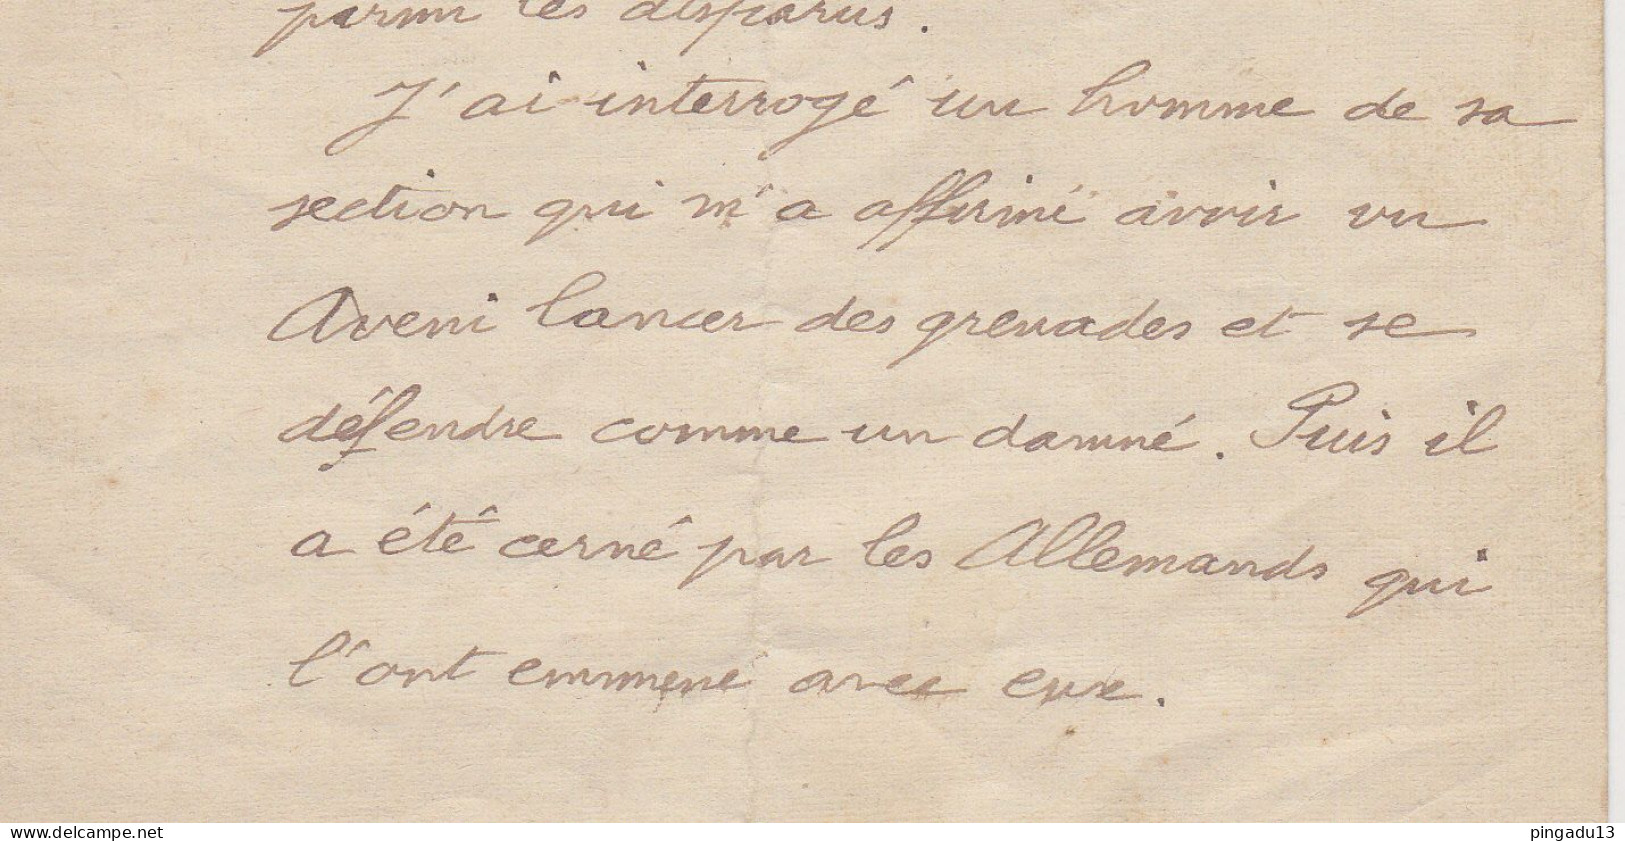 parmi les disparus.
J'ai interrogé un homme de sa
section qui m'a affirmé avoir vu
Aveni lancer des grenades et se
défendre comme un damné. Puis il
a été cerné par les Allemands qui
l'ont emmené avec eux.
www.delcampe.net
pingadu13